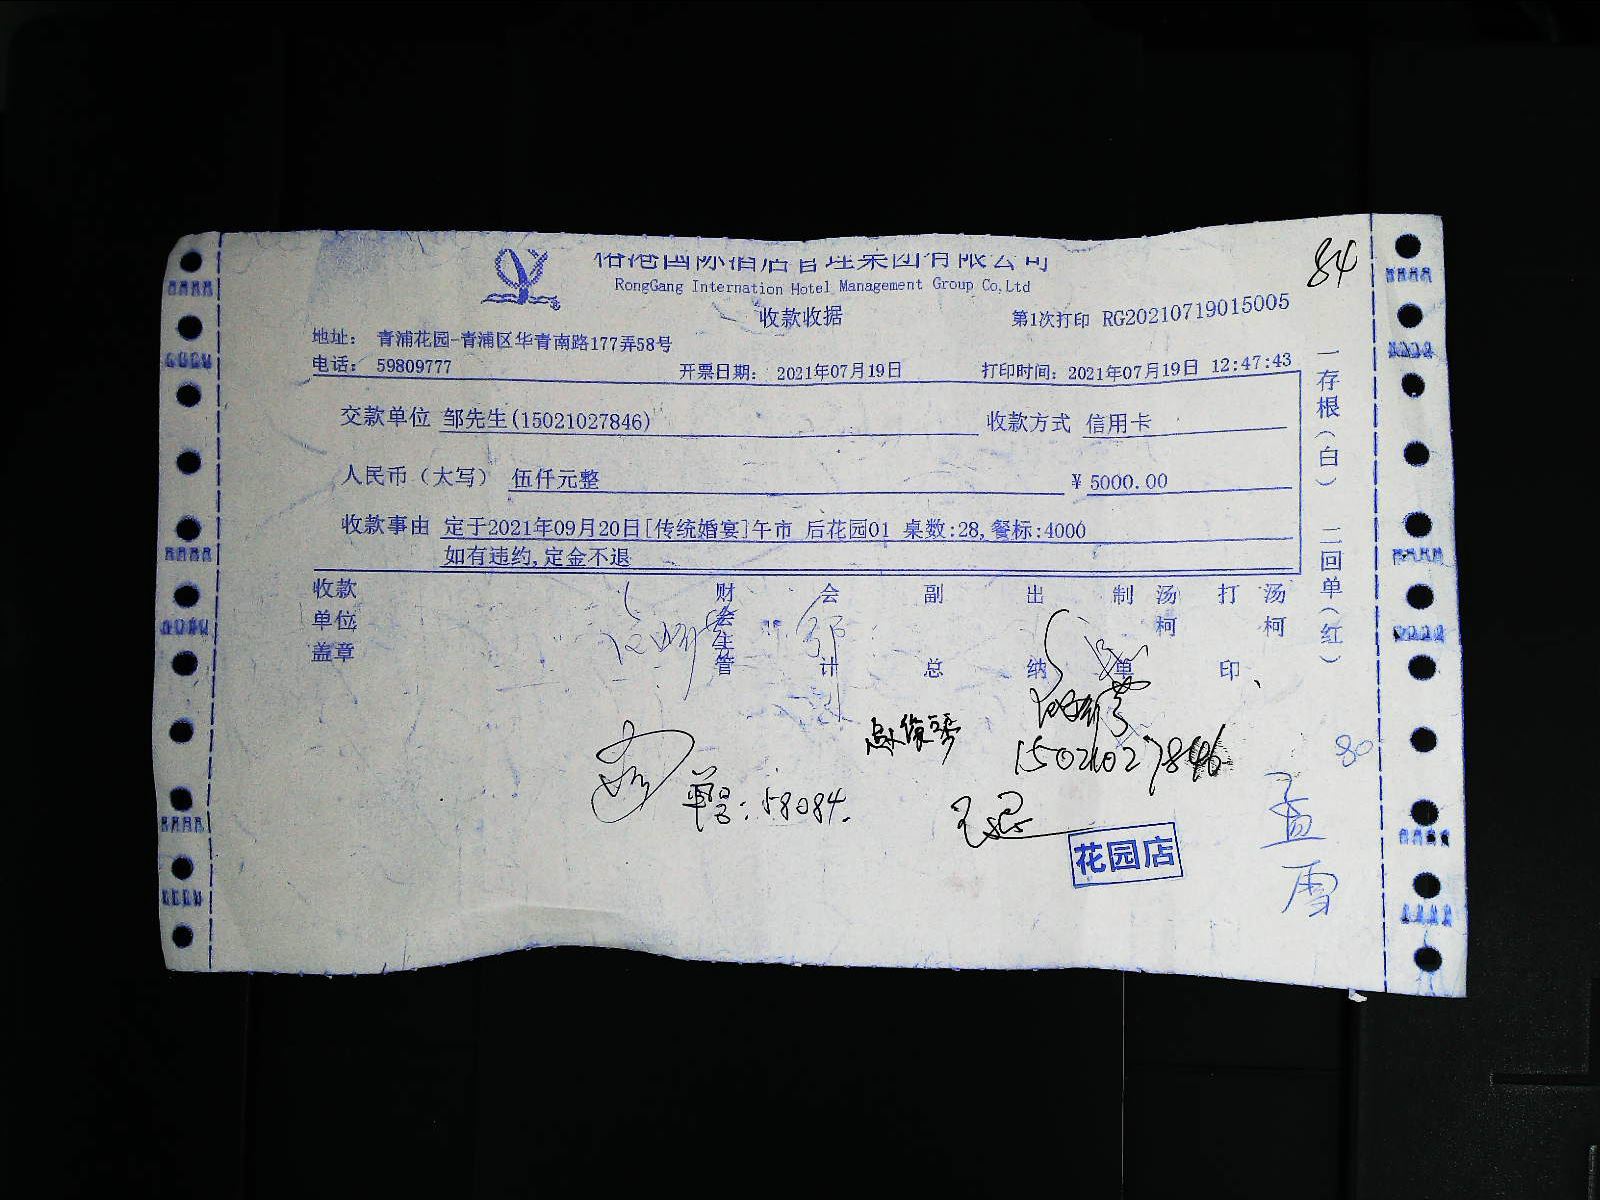 裕港国际酒店管理集团有限公司
RongGang Internation Hotel Management Group Co,Ltd
84
收款收据
第1次打印 RG20210719015005
地址： 青浦花园-青浦区华青南路177弄58号
电话： 59809777
开票日期： 2021年07月19日
打印时间：2021年07月19日 12:47:43
交款单位 邹先生(15021027846)
收款方式 信用卡
人民币（大写） 伍仟元整
¥ 5000.00
收款事由 定于2021年09月20日[传统婚宴]午市 后花园01 桌数:28,餐标:4000
如有违约,定金不退
一存根（白） 二回单（红）
收款单位盖章
财会主管
会计
副总
出纳
制单 汤柯
打印 汤柯
15021027846
单号:58084.
花园店
80
孟雪